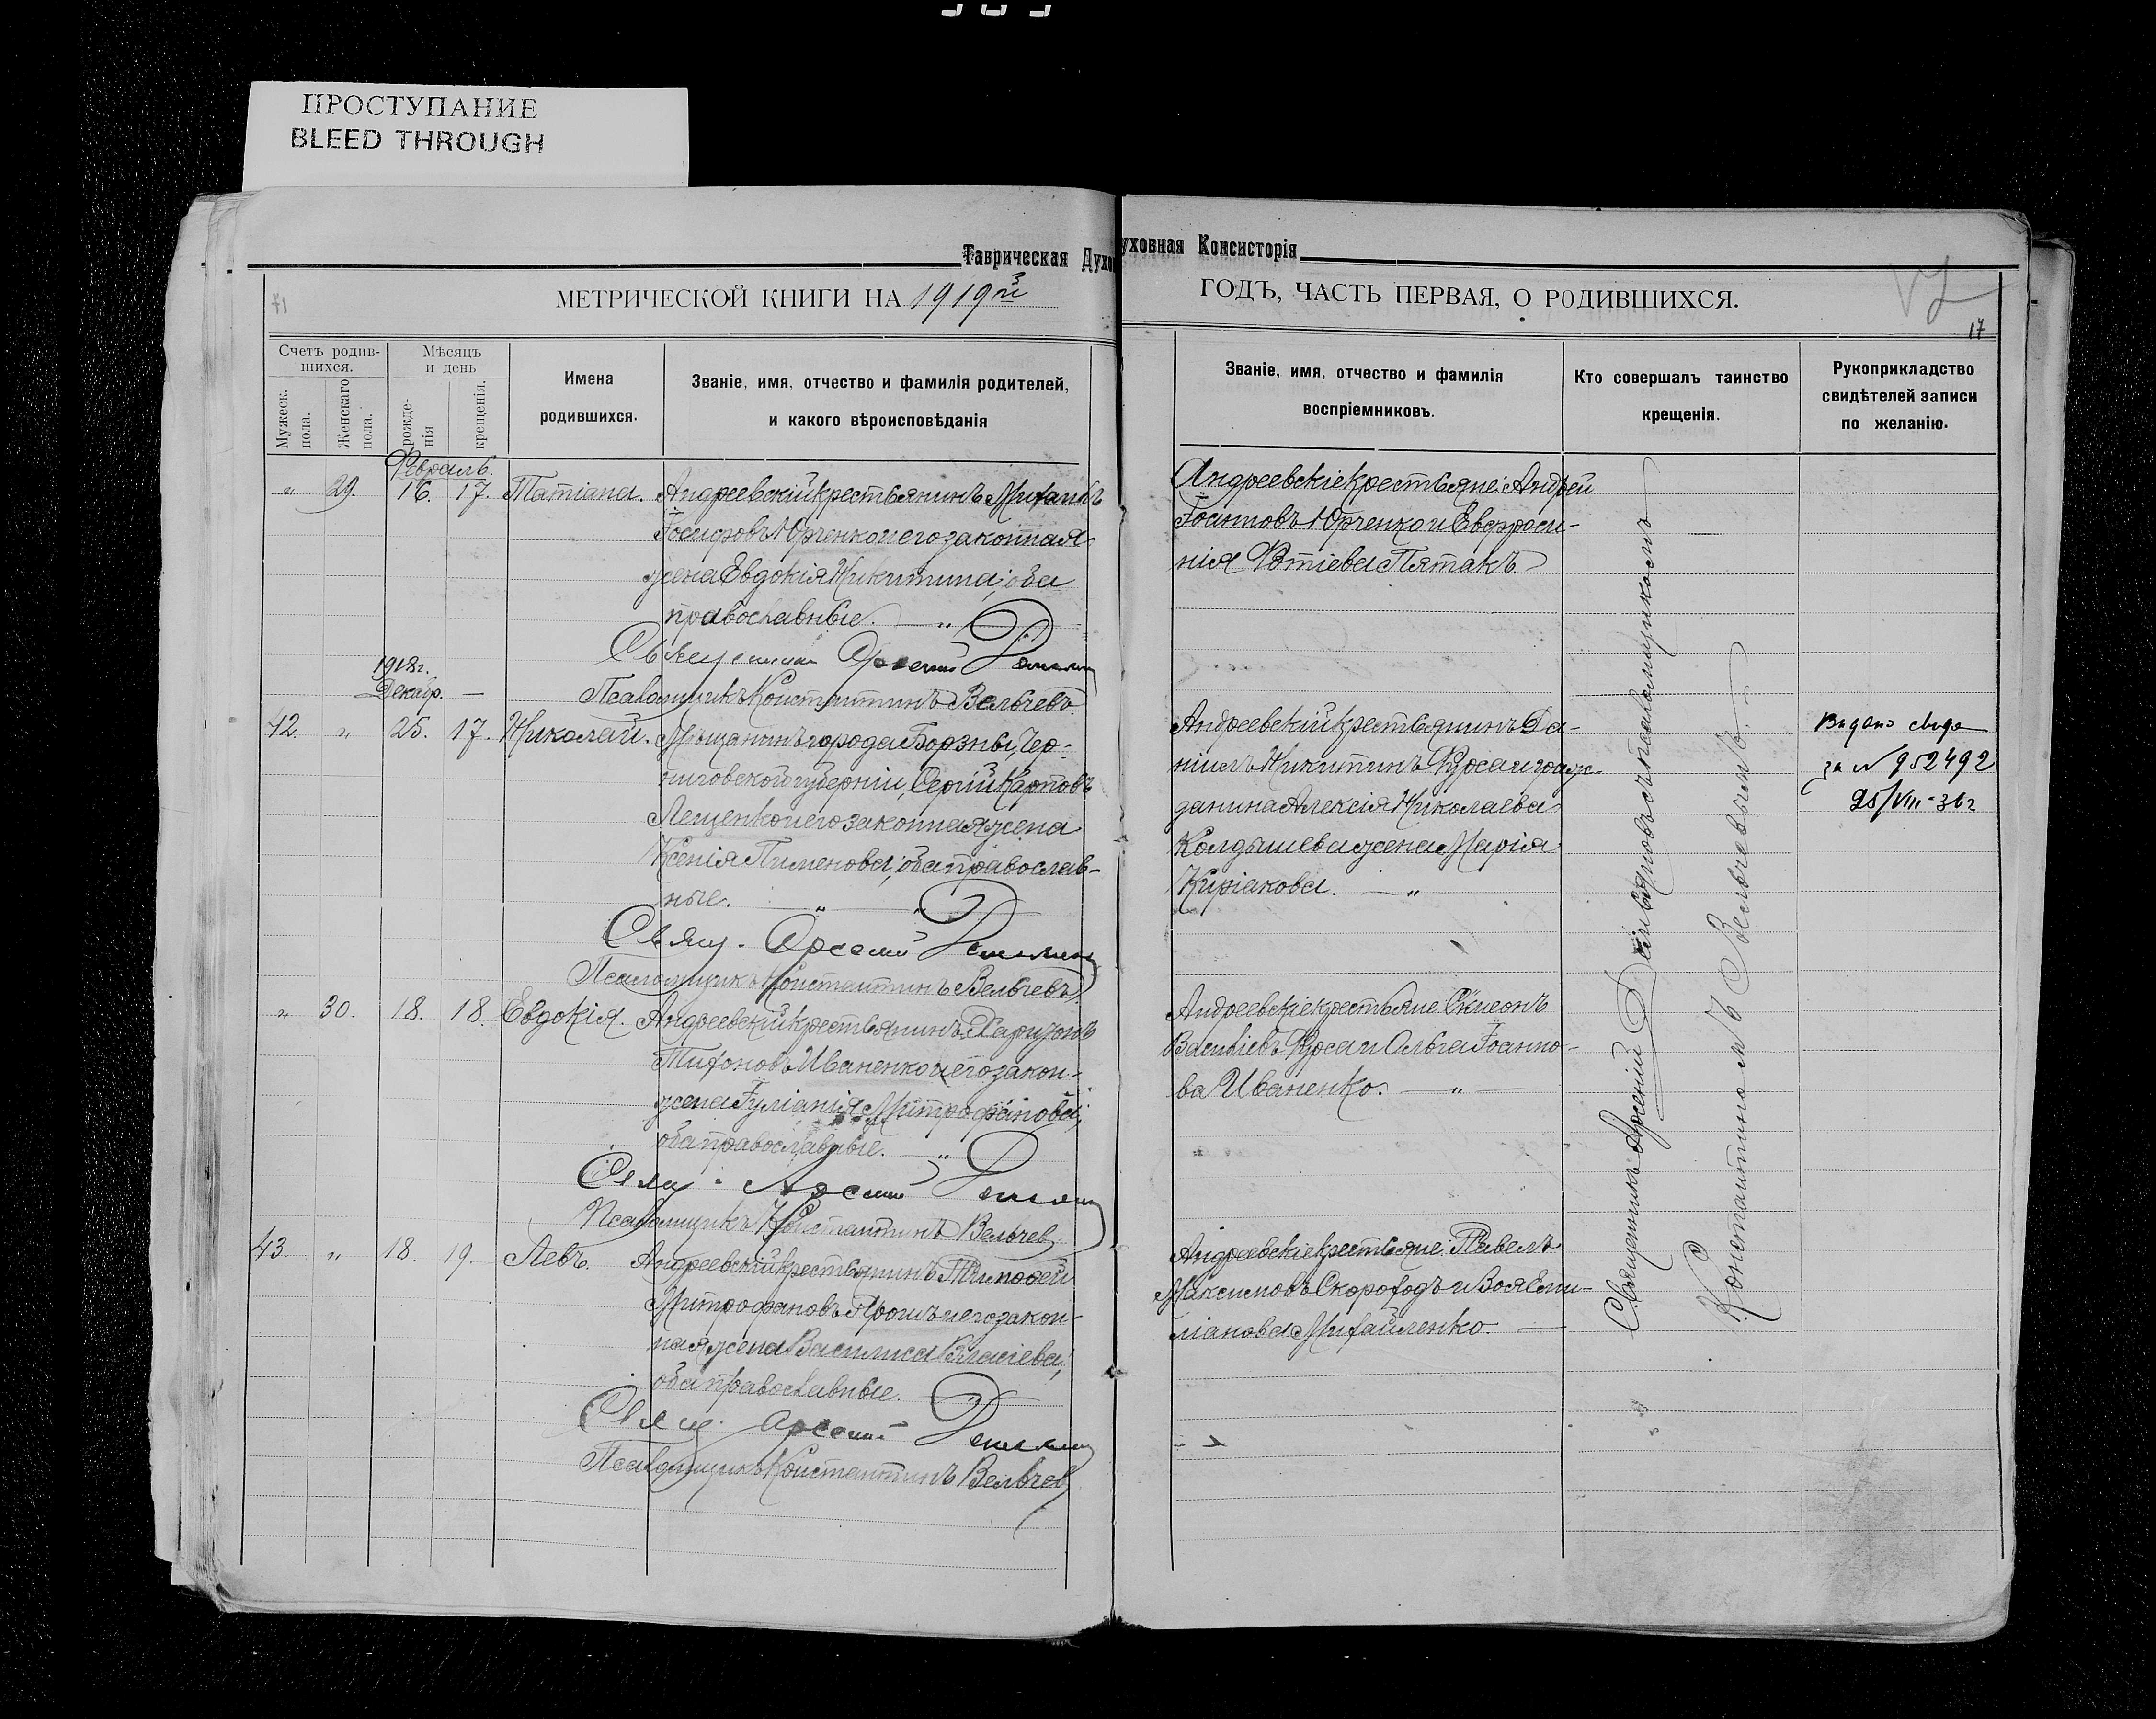 ПРОСТУПАНИЕ
BLEED THROUGH
Таврическая Духовная Консисторія
МЕТРИЧЕСКОЙ КНИГИ НА 1919й
ГОДЪ, ЧАСТЬ ПЕРВАЯ, О РОДИВШИХСЯ.
17
Счетъ родив-
шихся.
Мужеск.
пола.
Женскаго
пола.
Мѣсяцъ
и день
рожде-
нія
крещенія.
Имена
родившихся.
Званіе, имя, отчество и фамилія родителей,
и какого вѣроисповѣданія
Званіе, имя, отчество и фамилія
воспріемниковъ.
Кто совершалъ таинство
крещенія.
Рукоприкладство
свидѣтелей записи
по желанію.
Февраль.
" 29. 16. 17. Татіана. Андреевскій крестьянинъ Михаилъ
Іосифовъ Юрченко и его законная
жена Евдокія Никитина; оба
православные. "
Священникъ Арсеній
Псаломщикъ Константинъ Вельчевъ
Андреевскіе крестьяне: Андрей
Іоанновъ Юрченко и Евфроси-
нія Пятакъ.
1918г.
Декабр.
42. " 25. 17. Николай. Мѣщанинъ города Борзны, Чер-
ниговской губерніи, Сергій Карповъ
Лещенко и его законная жена
Ксенія Пименова; оба православ-
ные. "
Свящ. Арсеній
Псаломщикъ Константинъ Вельчевъ
Андреевскій крестьянинъ Да-
ніилъ Никитинъ Курса и граж-
данина Алексія Николаева
Колдышева жена Марія
Киріакова. "
Видано свид
за № 952492
25/VIII-36г
" 30. 18. 18. Евдокія. Андреевскій крестьянинъ Харитонъ
Тихоновъ Иваненко и его закон-
жена Іуліанія Митрофанова;
оба православные. "
Свящ. Арсеній
Псаломщикъ Константинъ Вельчев
Андреевскіе крестьяне: Симеонъ
Васильевъ Курса и Ольга Іоанно-
ва Иваненко. "
43. " 18. 19. Левъ. Андреевскій крестьянинъ Тимоѳей
Митрофановъ Ярошъ и его закон-
ная жена Василиса Власіева;
оба православные.
Свящ. Арсеній
Псаломщикъ Константинъ Вельчев
Андреевскіе крестьяне: Павелъ
Максимовъ Скороходъ и Зоя Еми-
ліанова Михайленко.
Священникъ Арсеній съ псаломщикомъ
Константиномъ Вельчевымъ.